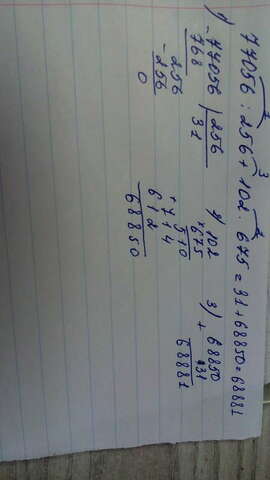 1 3 2
77056 : 256 + 102 · 675 = 31 + 68850 = 68881
1) - 77056 | 256
768 31
- 256
256
0
2) 102
× 675
510
+ 714
612
68850
3) 68850
+ 31
68881